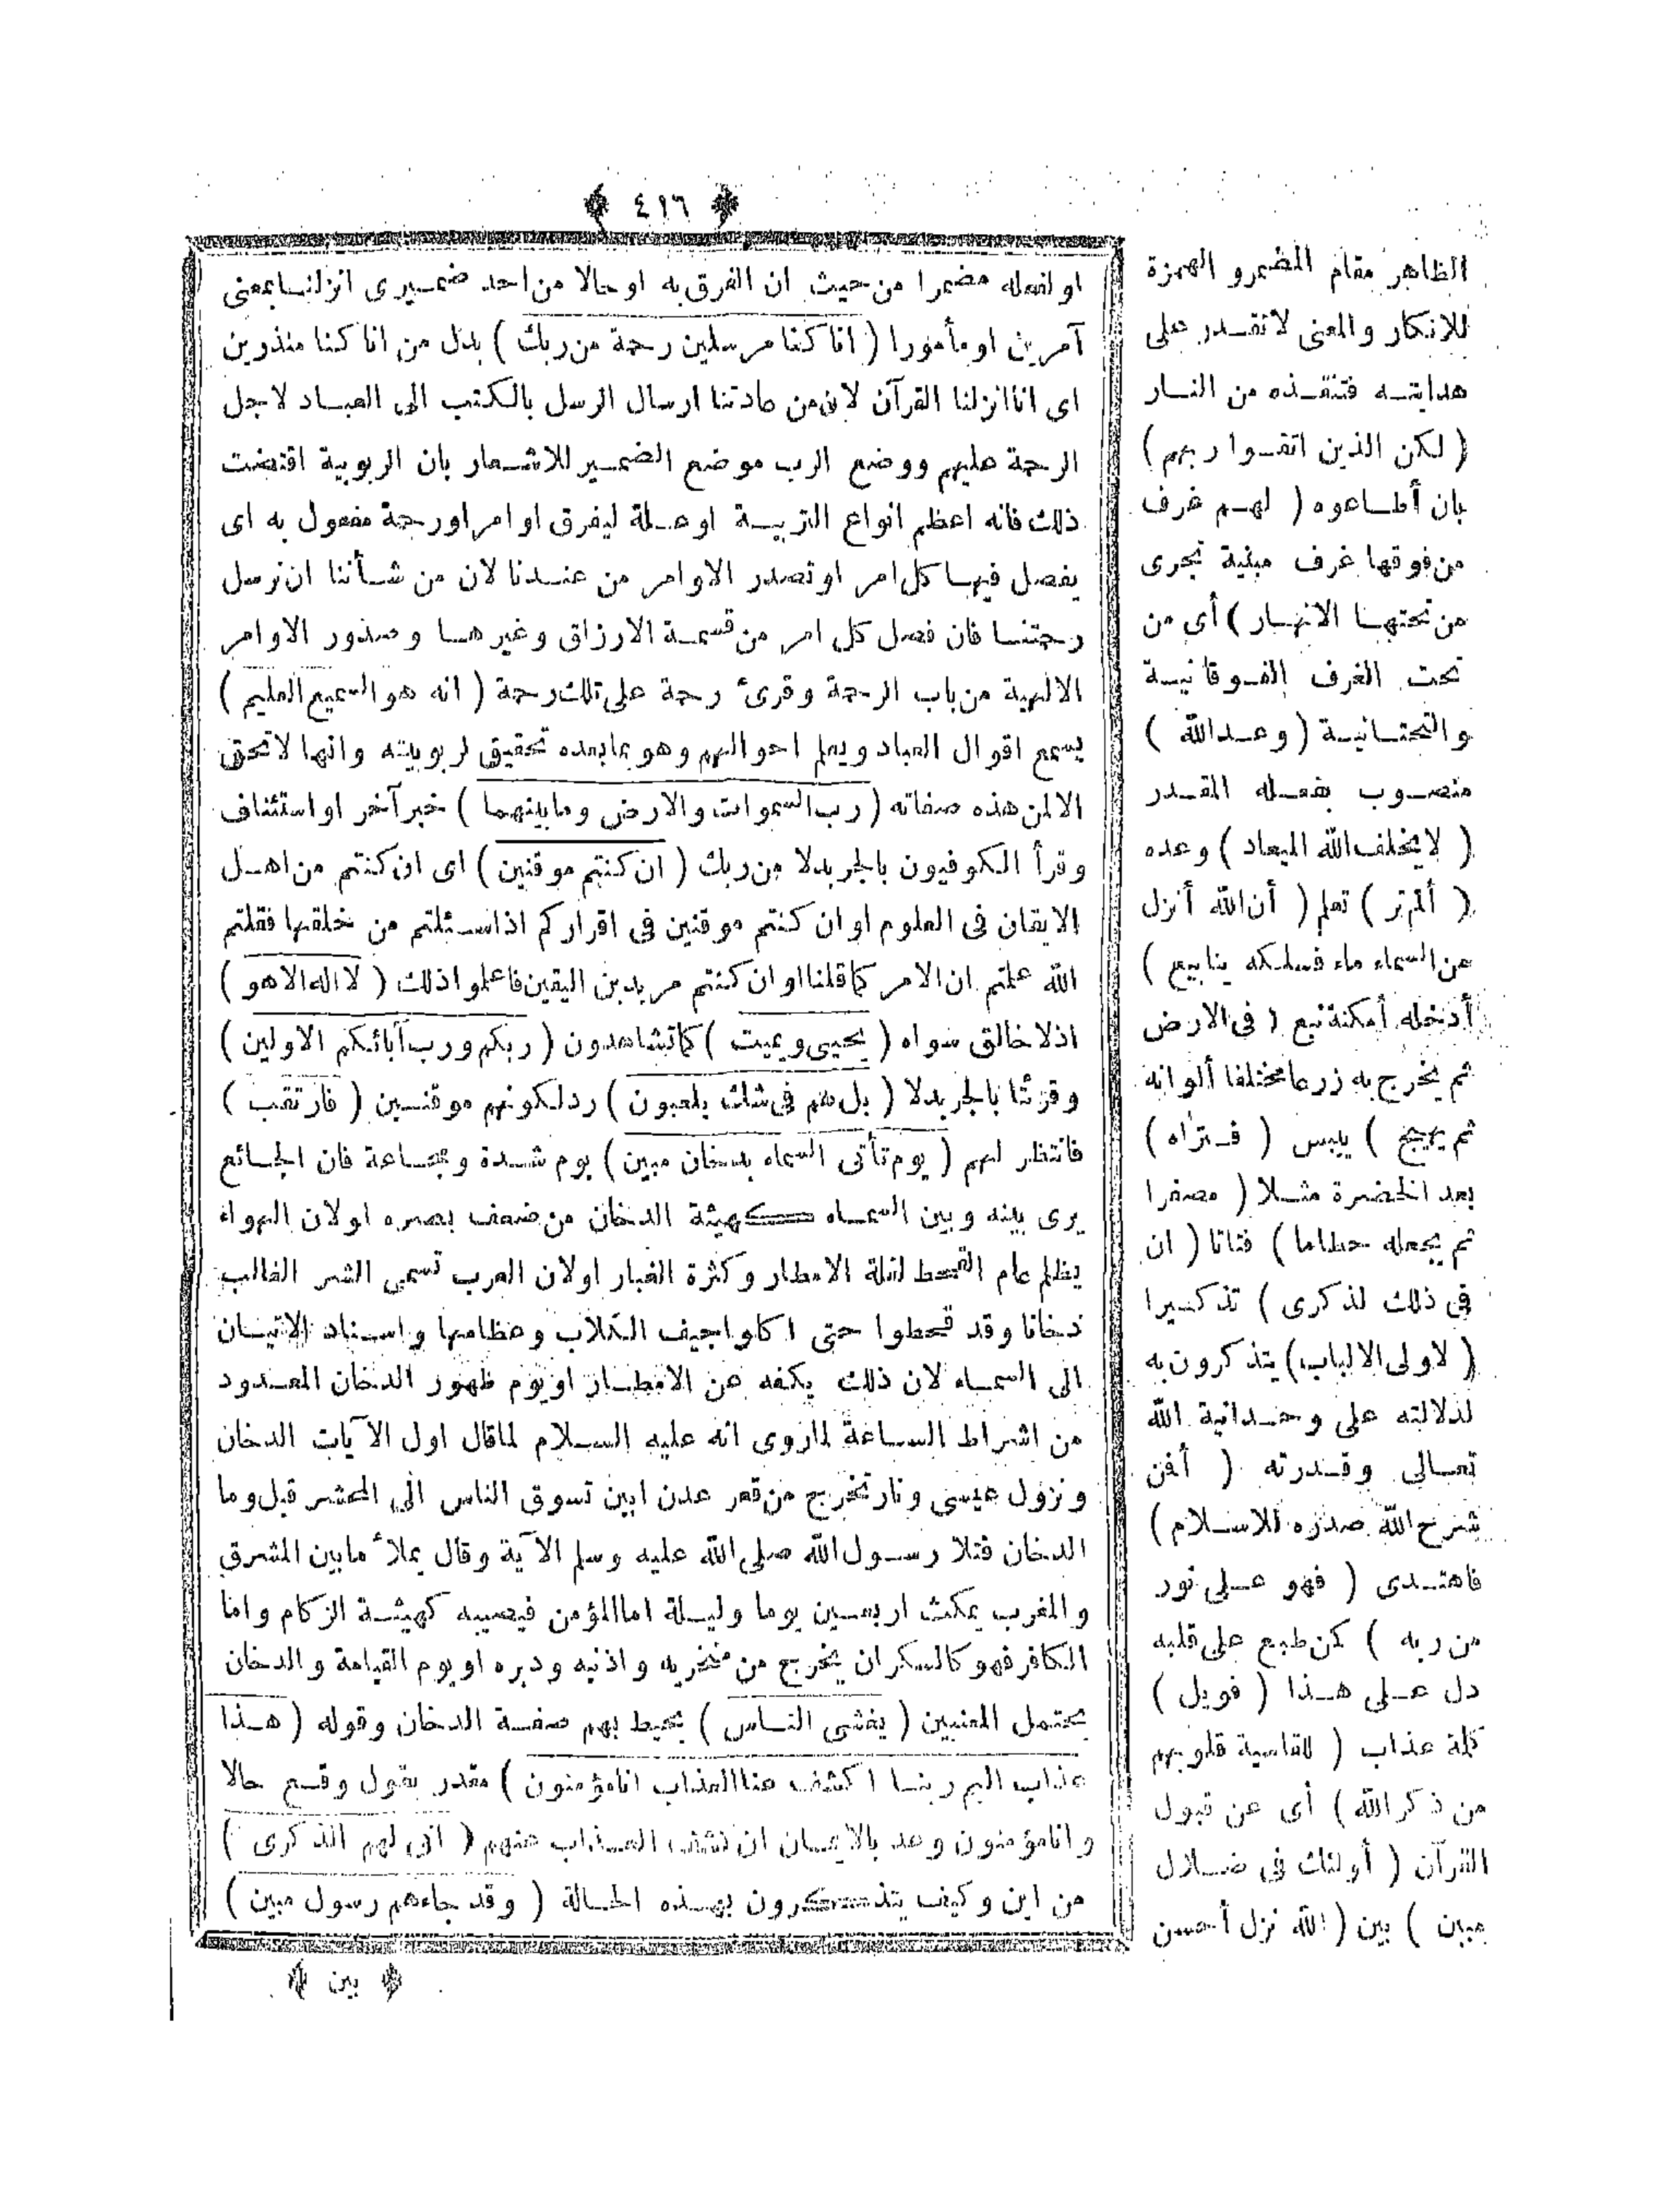 ٤١٦
او لفعله مضمرا من حيث ان الفرق به او حالا من احد ضميرى انزلنا بمعنى
آمرين او مأمورا ( انا كنا مرسلين رحمة من ربك ) بدل من انا كنا منذرين
اى انا انزلنا القرآن لان من عادتنا ارسال الرسل بالكتب الى العباد لاجل
الرحمة عليهم ووضع الرب موضع الضمير للاشعار بان الربوبية اقتضت
ذلك فانه اعظم انواع التربية او علة ليفرق او امرا ورحمة مفعول به اى
يفصل فيها كل امر او تصدر الاوامر من عندنا لان من شأننا ان نرسل
رحمتنا فان فصل كل امر من قسمة الارزاق وغيرها وصدور الاوامر
الالهية من باب الرحمة وقرئ رحمة على تلك رحمة ( انه هو السميع العليم )
يسمع اقوال العباد ويعلم احوالهم وهو بما بعده تحقيق لربوبيته وانها لا تحق
الا لمن هذه صفاته ( رب السموات والارض وما بينهما ) خبر آخر او استئناف
وقرأ الكوفيون بالجر بدلا من ربك ( ان كنتم موقنين ) اى ان كنتم من اهل
الايقان فى العلوم او ان كنتم موقنين فى اقراركم اذا سئلتم من خلقها فقلتم
الله علتم ان الامر كما قلنا او ان كنتم مريدين اليقين فاعلموا ذلك ( لا اله الا هو )
اذ لا خالق سواه ( يحيى ويميت ) كما تشاهدون ( ربكم ورب آبائكم الاولين )
وقرئا بالجر بدلا ( بل هم فى شك يلعبون ) رد لكونهم موقنين ( فارتقب )
فانتظر لهم ( يوم تأتى السماء بدخان مبين ) يوم شدة ومجاعة فان الجائع
يرى بينه وبين السماء كهيئة الدخان من ضعف بصره او لان الهواء
يظلم عام القحط لقلة الامطار وكثرة الغبار او لان العرب تسمى الشر الغالب
دخانا وقد قحطوا حتى اكلوا جيف الكلاب وعظامها واسناد الاتيان
الى السماء لان ذلك يكفه عن الامطار او يوم ظهور الدخان المعدود
من اشراط الساعة لما روى انه عليه السلام لما قال اول الآيات الدخان
ونزول عيسى ونار تخرج من قعر عدن ابين تسوق الناس الى المحشر قيل وما
الدخان فتلا رسول الله صلى الله عليه وسلم الآية وقال يملأ ما بين المشرق
والمغرب يمكث اربعين يوما وليلة اما المؤمن فيصيبه كهيئة الزكام واما
الكافر فهو كالسكران يخرج من منخريه واذنيه ودبره او يوم القيامة والدخان
يحتمل المعنيين ( يغشى الناس ) يحيط بهم صفة الدخان وقوله ( هذا
عذاب اليم ربنا اكشف عنا العذاب انا مؤمنون ) مقدر بقول وقع حالا
وانا مؤمنون وعد بالايمان ان كشف العذاب عنهم ( انى لهم الذكرى )
من اين وكيف يتذكرون بهذه الحالة ( وقد جاءهم رسول مبين )
بين
الظاهر مقام المضمر والهمزة
للانكار والمعنى لا تقدر على
هدايته فتنقذه من النار
( لكن الذين اتقوا ربهم )
بان أطاعوه ( لهم غرف
من فوقها غرف مبنية تجرى
من تحتها الانهار ) أى من
تحت الغرف الفوقانية
والتحتانية ( وعد الله )
منصوب بفعله المقدر
( لا يخلف الله الميعاد ) وعده
( ألم تر ) تعلم ( أن الله أنزل
من السماء ماء فسلكه ينابيع )
أدخله أمكنة نبع ( فى الارض
ثم يخرج به زرعا مختلفا ألوانه
ثم يهيج ) ييبس ( فتراه )
بعد الخضرة مثلا ( مصفرا
ثم يجعله حطاما ) فتاتا ( ان
فى ذلك لذكرى ) تذكيرا
( لاولى الالباب ) يتذكرون به
لدلالته على وحدانية الله
تعالى وقدرته ( أفمن
شرح الله صدره للاسلام )
فاهتدى ( فهو على نور
من ربه ) كمن طبع على قلبه
دل على هذا ( فويل )
كلمة عذاب ( للقاسية قلوبهم
من ذكر الله ) أى عن قبول
القرآن ( أولئك فى ضلال
مبين ) بين ( الله نزل أحسن